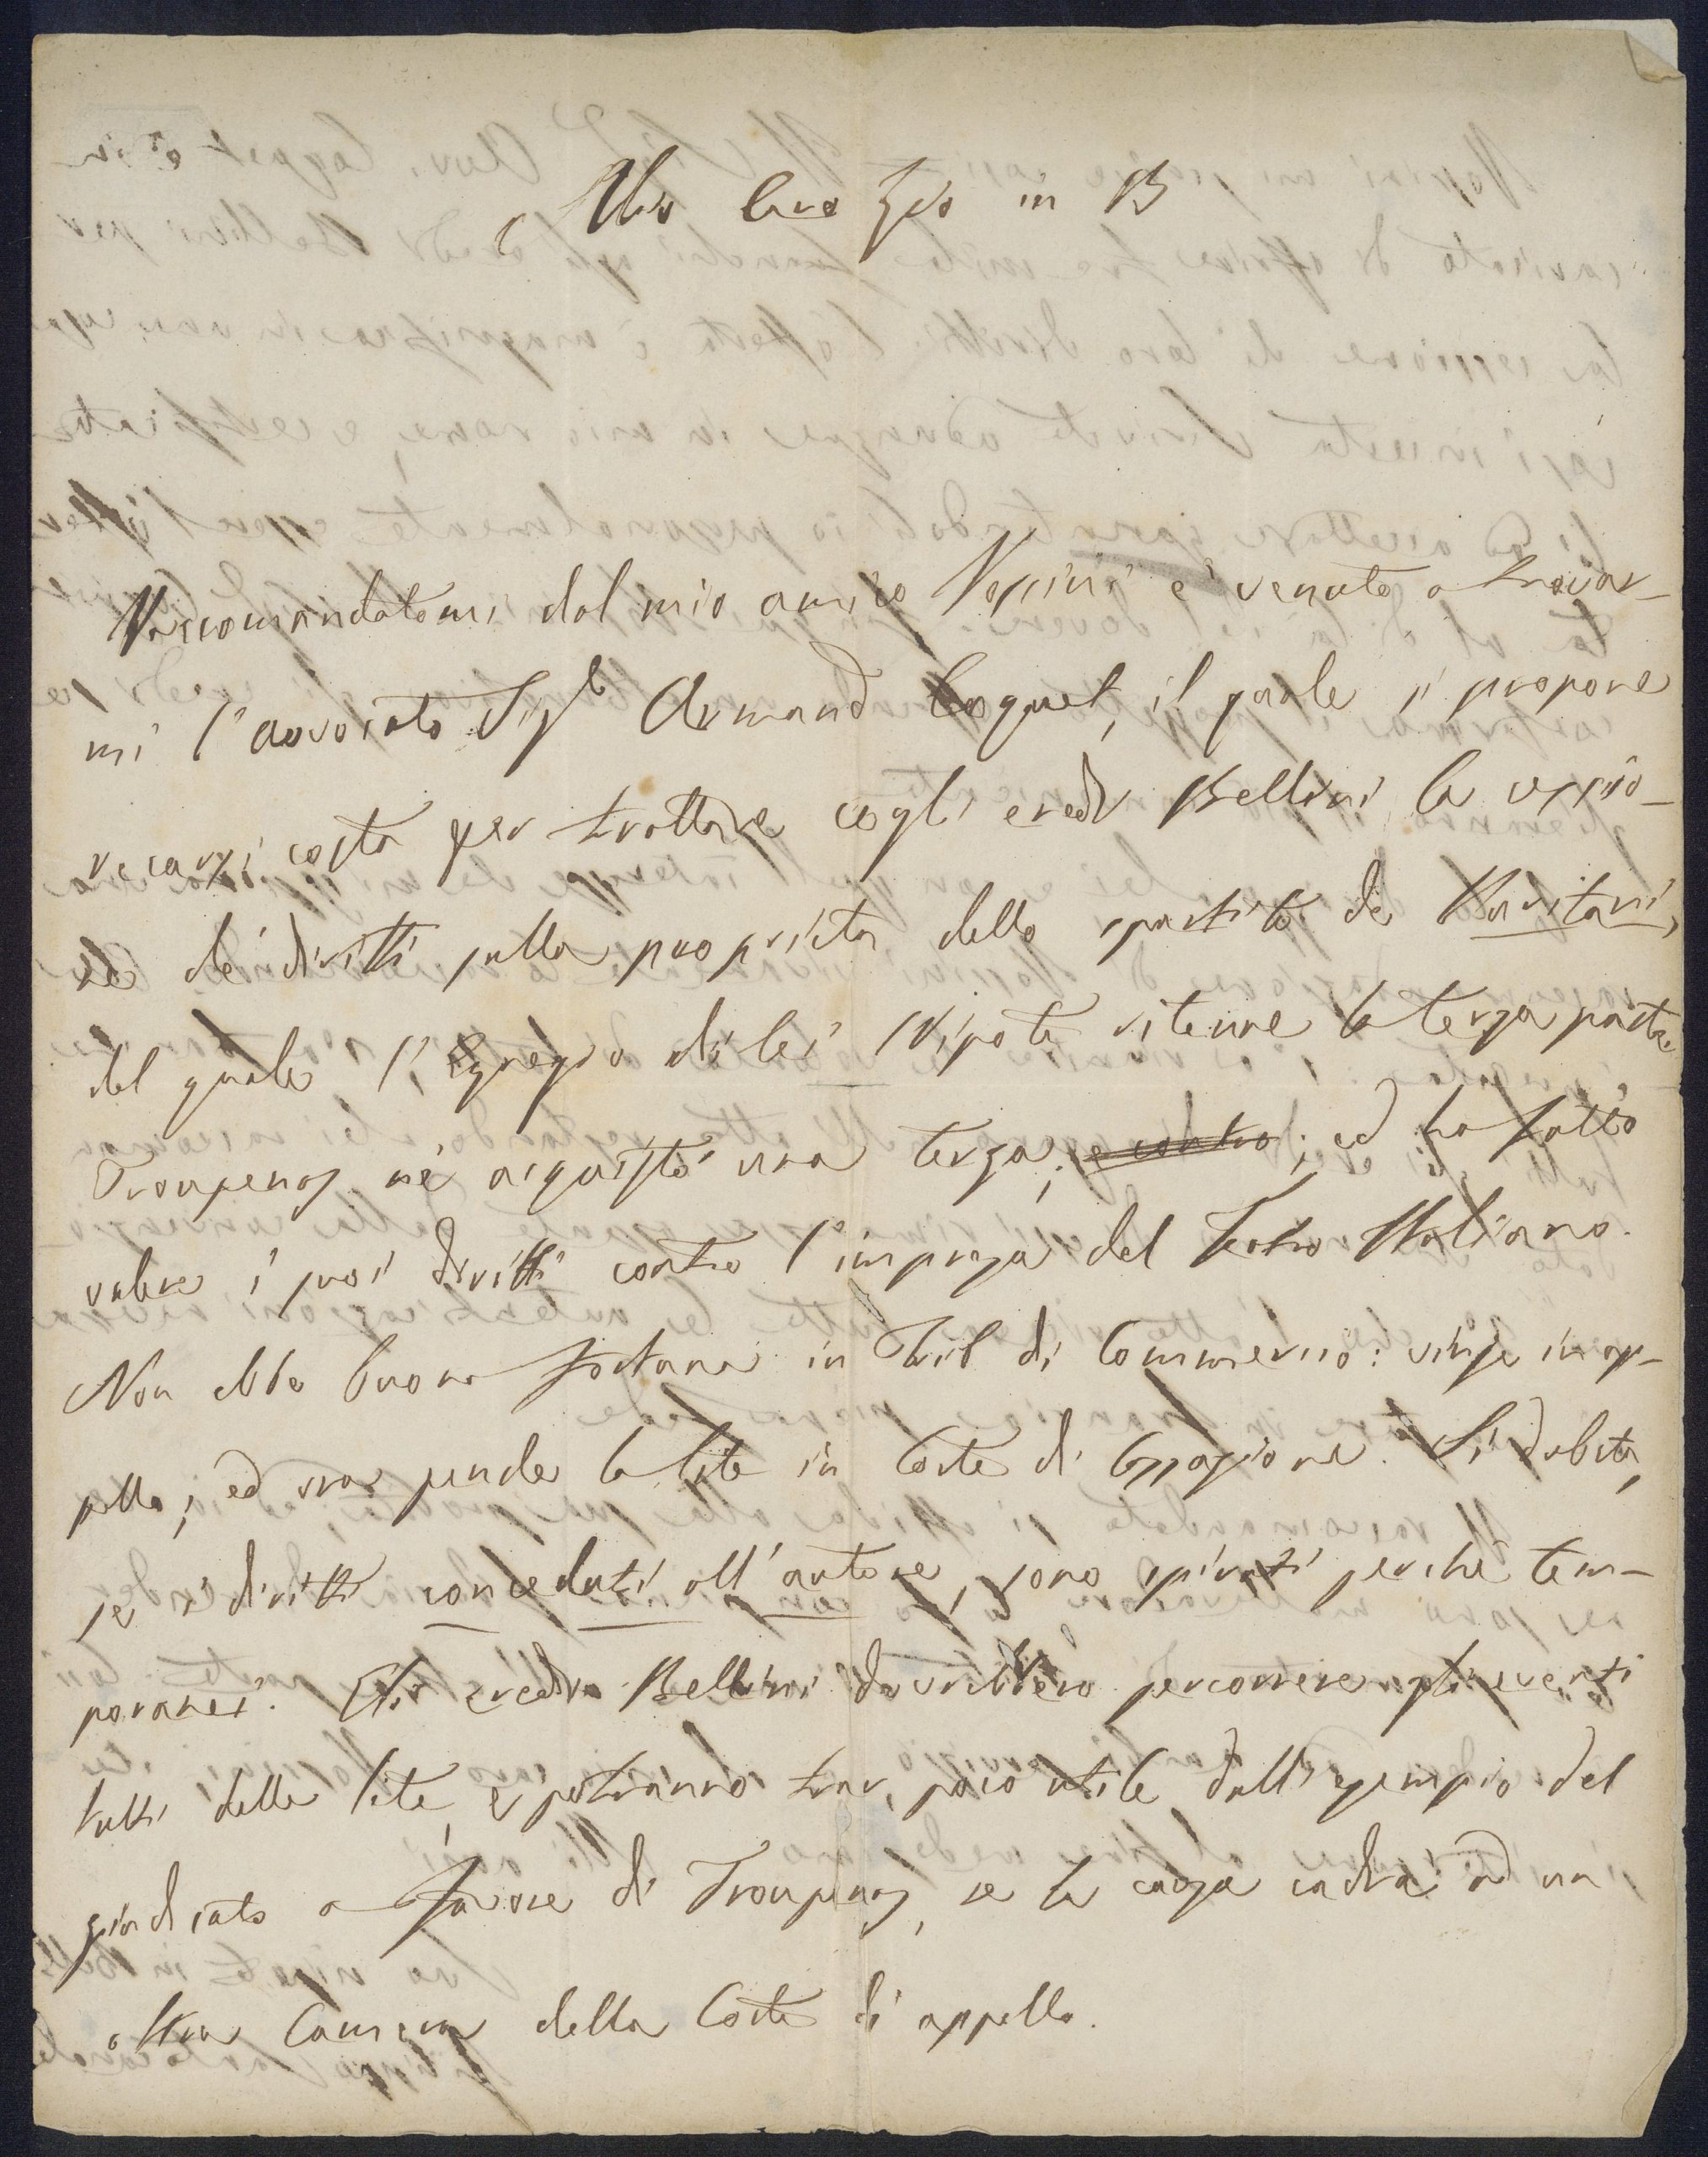 Mio Caro Zio in B
Raccomandatomi dal mio amico Rossini è venuto a trovar-
mi l'avvocato Sigr Armand Coquet, il quale si propone
recarsi costà per trattare cogli eredi Bellini la cessio-
ne de' diritti sulla proprietà dello spartito de Puritani,
del quale l'Egregio di lei Nipote ritenne la terza parte
Troupenas ne acquistò una terza; e contro; ed ha fatto
valere i suoi diritti contro l'impresa del Teatro Italiano.
Non ebbe buona fortuna in Trib di Commercio: vinse in ap-
pello; ed ora pende la lite in Corte di Cassazione. Si dubita,
se i diritti conceduti all'autore, sono spirati perchè tem-
poranei. Gli eredi Bellini dovrebbero percorrere gli eventi
tutti della lite, e potranno trar poco utile dall'esempio del
giudicato a favore di Troupenas, se la causa cadrà ad un
altra Camera della Corte di appello.